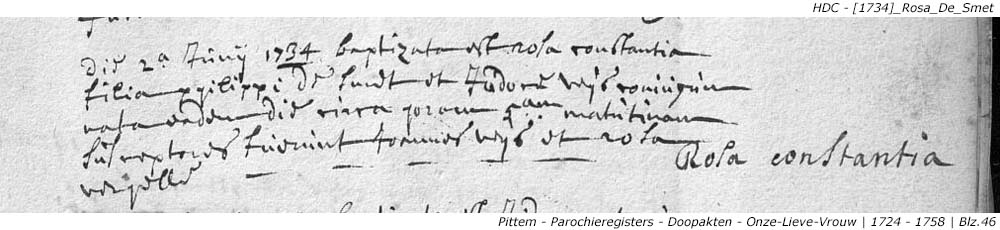 HDC - [1734]_Rosa_De_Smet
die 2a Junij 1734 baptizata est rosa constantia
filia philippi de smet et Judocæ weijs coniugum
nata eadem die circa horam matutinam
susceptores fuerunt Joannes weijs et rosa
Rosa constantia
Pittem - Parochieregisters - Doopakten - Onze-Lieve-Vrouw | 1724 - 1758 | Blz.46